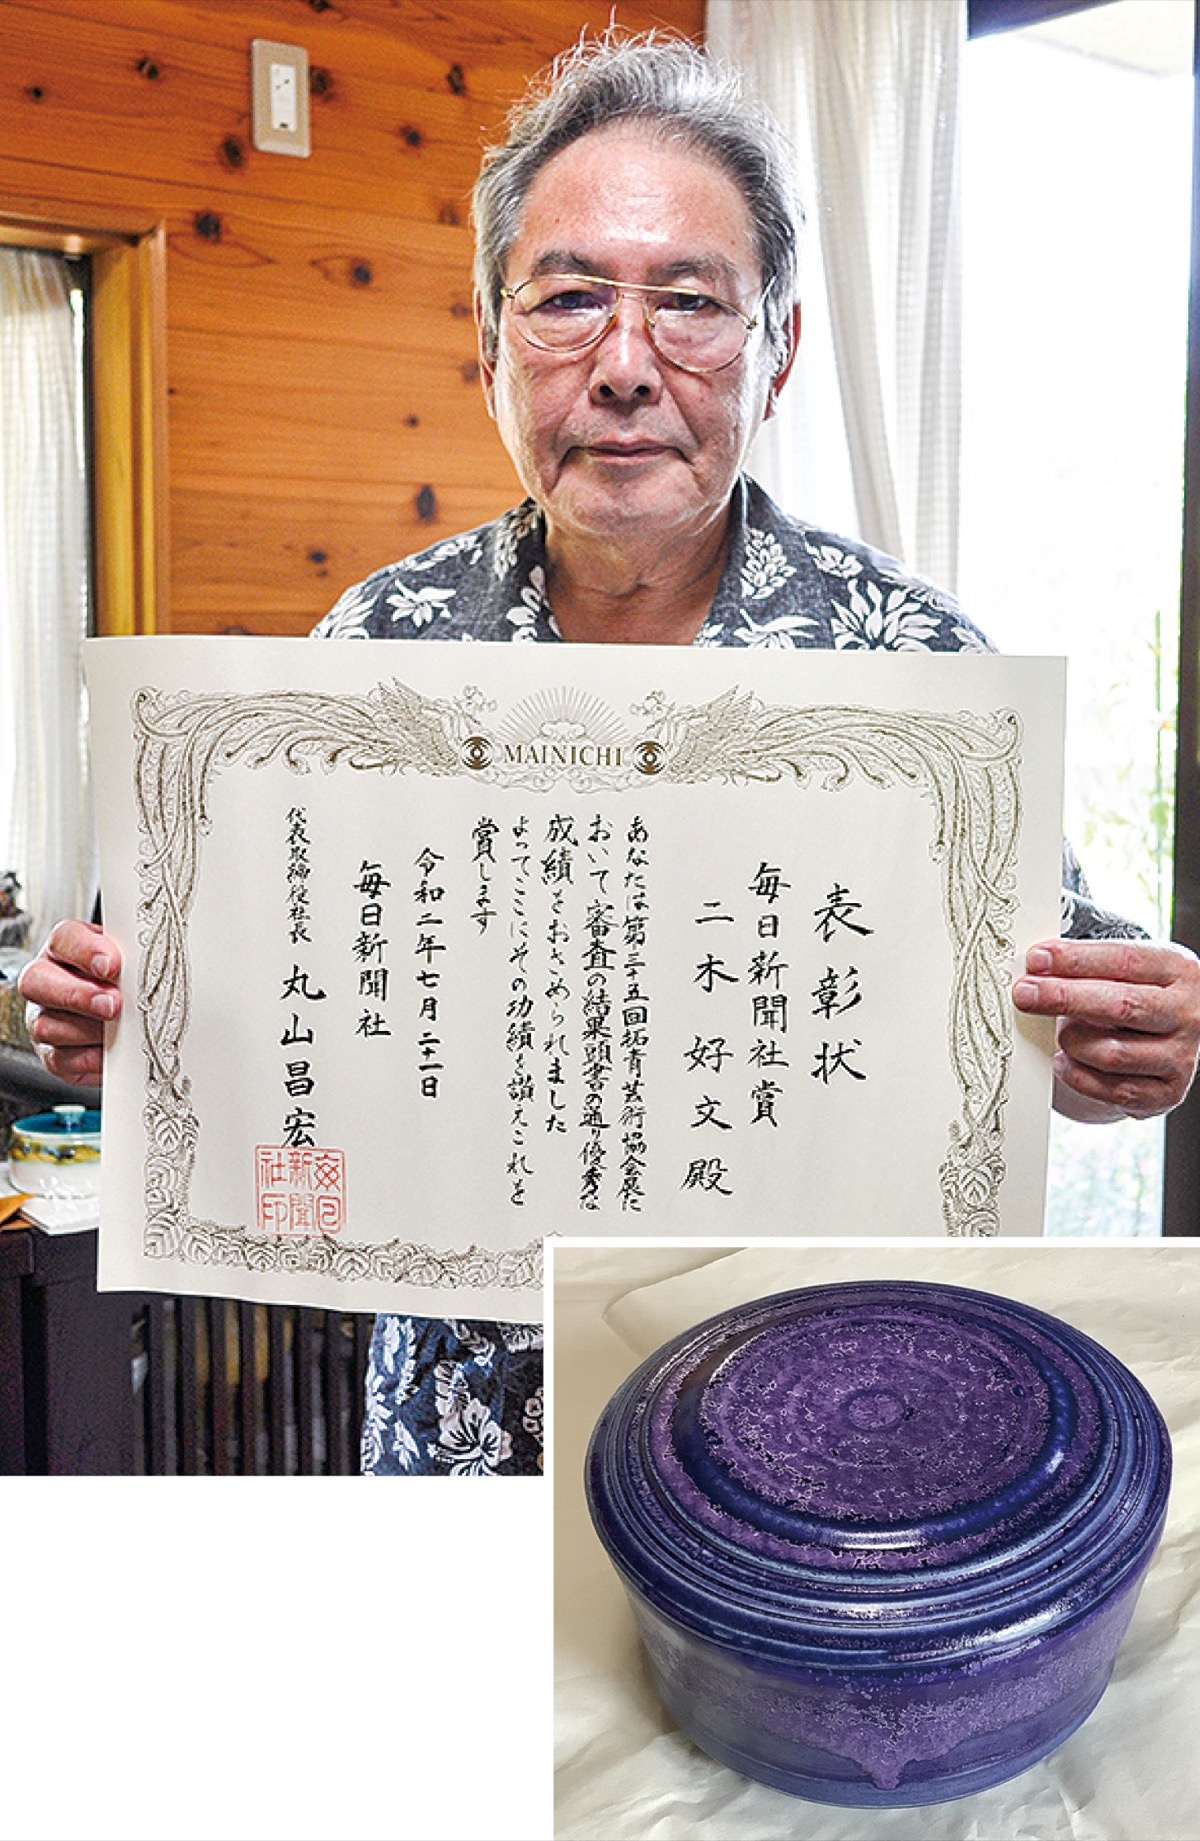 MAINICHI
表彰状
毎日新聞社賞
二木好文殿
あなたは第三十五回拓青芸術協会展に
おいて審査の結果頭書の通り優秀な
成績をおさめられました
よってここにその功績を讃えこれを
賞します
令和二年七月二十一日
毎日新聞社
代表取締役社長 丸山昌宏
毎日
新聞
社印